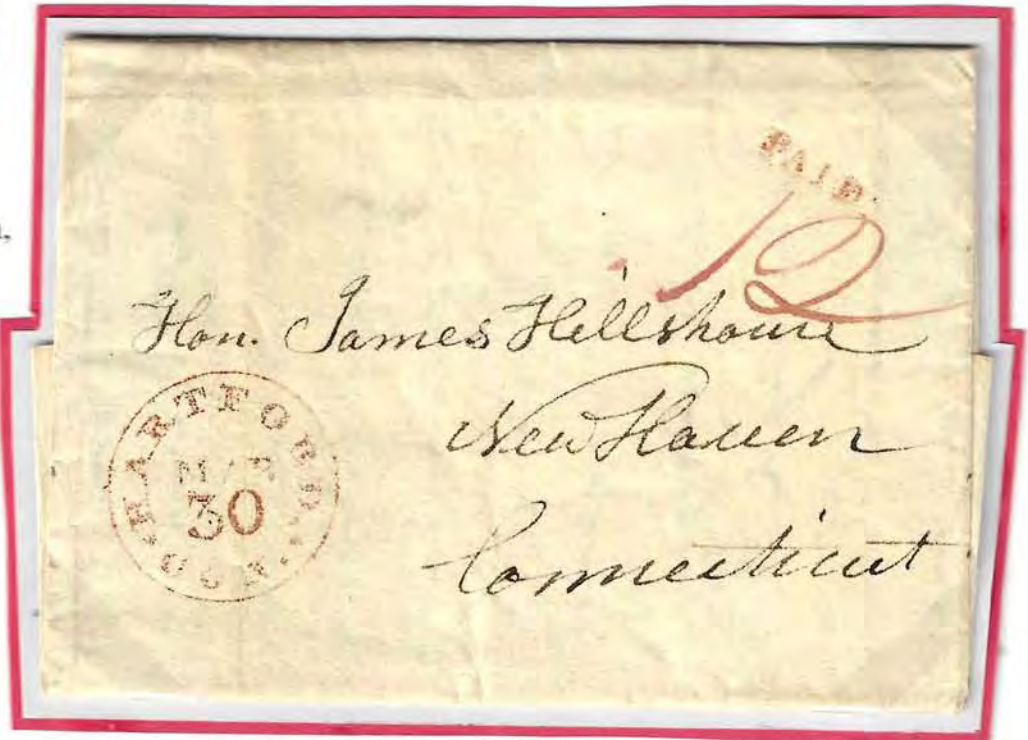 PAID.
12
Hon. James Hillshouse
New Haven
Connecticut
HARTFORD.
MAR
30
CON.